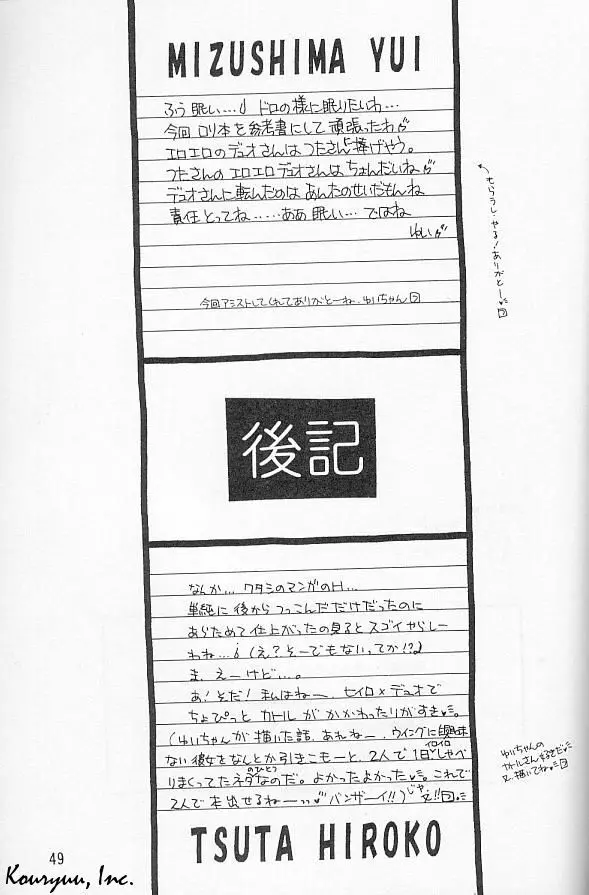 MIZUSHIMA YUI
ふう眠い…。ドロの様に眠りたいわ…
今回ロリ本を参考書にして頑張ったわ
エロエロのデュオさんはつたさんに捧げやう。
つたさんのエロエロデュオさんはちょんだいね
デュオさんに転んだのはあんたのせいだもんね
責任とってね……ああ眠い…ではね
ゆい
今回アシストしてくれてありがとーね、ゆいちゃん
後記
なんか…ワタシのマンガのH…
単純に後からつっこんだだけだったのに
あらためて仕上がったの見るとスゴイやらしー
わね…(え?そーでもないってか!?)
ま、えーけど…。
あ!そだ!私はねー、セイロ×デュオで
ちょぴっとカトルがかかわったりがすき
(ゆいちゃんが描いた話、あれねー、ウイングに興味
ない彼女をなんとか引きこもーと、2人で1日イロイロしゃべ
りまくってたネタなのだ。よかったよかった。これで
のひとつ
2人で本出せるねーっっバンザーイ!!)じゃ、又!!
ゆいちゃんの
カトルさんすきだ
又、描いてね
TSUTA HIROKO
49
Kouryuu, Inc.